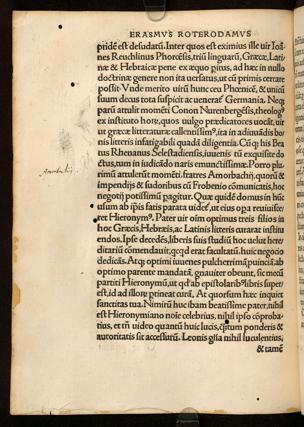 ERASMVS ROTERODAMVS
pridẽ est desudatũ. Inter quos est eximius ille uir Ioã/
nes Reuchlinus Phorcẽsis, triũ linguarũ, Græcæ, Lati
næ & Hebraicæ pene ex æquo pitus, ad hæc in nullo
doctrinæ genere non ita uersatus, ut cũ primis certare
possit. Vnde merito uirũ hunc ceu Phœnicẽ, & unicũ
suum decus tota suspicit ac uenerat Germania. Neq
parũ attulit momẽti Conon Nurenbergẽsis, theologꝰ
ex instituto horꝝ, quos uulgo prædicatores uocãt, uir
ut græcæ litteraturæ callentissimꝰ, ita in adiuuãdis bo/
nis litteris infatigabili quadã diligentia. Cũ qͥ his Bea
tus Rhenanus Selestadiensis, iuuenis tũ exquisite do
ctus, tum in iudicãdo naris emunctissimæ. Porro plu
rimũ attulerũt momẽti, fratres Amorbachij, quorũ &
impendijs & sudoribus cũ Frobenio cõmunicatis, hoc
negotij potissimũ pagitur. Quæ quidẽ domus in hũc
usum ab ipsis fatis parata uidet, ut eius opa reuiuisce/
ret Hieronymꝰ. Pater uir oĩm optimus treis filios in
hoc Græcis, Hebræis, ac Latinis litteris curarat institu
endos. Ipse decedẽs, liberis suis studiũ hoc uelut here/
ditariũ commendauit, qͥcqͥd erat facultatũ huic negocio
dedicãs. Atq optimi iuuenes pulcherrimã puinciã, ab
optimo parente mandatã, gnauiter obeunt, sic mecũ
partiti Hieronymũ, ut qd ab epistolaribꝰ libris super
est, id ad illorꝝ ptineat curã. At quorsum hæc inquit
sanctitas tua. Nimirũ huc ibam beatissime pater, nihil
est Hieronymiano noĩe celebrius, nihil ipso cõproba/
tius, et tñ uideo quantũ huic lucis, qͣntum ponderis &
autoritatis sit accessurũ. Leonis gͥssa nihil luculentius,
& tamẽ
Amorbachij